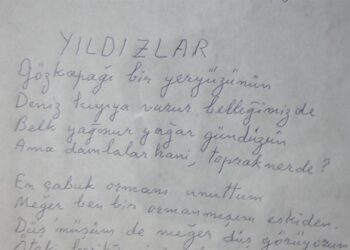 YILDIZLAR
Gözkapağı bir yeryüzünün
Deniz kıyıya vurur belleğimizde
Belk yağmur yağar gündüzün
Ama damlalar hani, toprak nerde?
En çabuk ormanı unuttum
Meğer ben bir ormanmışım eskiden.
Düş'müşüm de meğer düş görüyorum